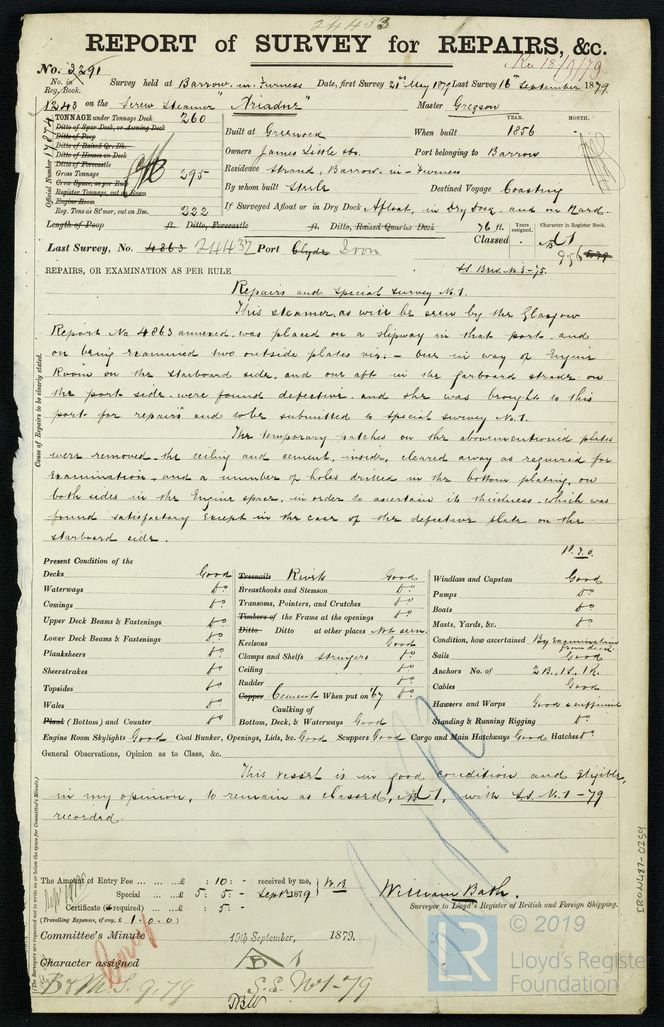 24433
REPORT of SURVEY for REPAIRS, &c.
No. 3291
Rec 18/9/79
No. in Reg. Book. Survey held at Barrow-in-Furness Date, first Survey 21st May 1879 Last Survey 16th September 1879
1243 on the Screw Steamer "Ariadne" Master Gregson
Official Number 17874
TONNAGE under Tonnage Deck 260
Ditto of Spar Deck, or Awning Deck
Ditto of Poop
Ditto of Raised Qr. Dk.
Ditto of Houses on Deck
Ditto of Forecastle
Gross Tonnage 295
Crew Space, as per Rule
Register Tonnage, cut on Beam
Engine Room
Reg. Tons as St'mer, cut on Bm. 222
YEAR. MONTH.
Built at Greenock When built 1856
Owners James Little & Co. Port belonging to Barrow
Residence Strand, Barrow-in-Furness
By whom built Steele Destined Voyage Coasting
If Surveyed Afloat or in Dry Dock Afloat, in Dry Dock, and on Hard.
Length of Poop ft. Ditto, Forecastle ft. Ditto, Raised Quarter Deck 76 ft.
Years assigned. Character in Register Book.
Last Survey, No. 4863 24432 Port Clyde Iron Classed A1
9,56
SS Brw. No. 3-75.
REPAIRS, OR EXAMINATION AS PER RULE
Repairs and Special Survey No. 1.
This steamer, as will be seen by the Glasgow
Report No. 4863 annexed, was placed on a slipway in that port, and
on being examined two outside plates viz. - one in way of Engine
Room on the starboard side, and one aft in the garboard strake on
the port side were found defective, and she was brought to this
port for repairs and to be submitted to Special Survey No. 1.
The temporary patches on the abovementioned plates
were removed, the ceiling and cement, inside, cleared away as required for
Examination, and a number of holes drilled in the bottom plating, on
both sides in the Engine space, in order to ascertain its thickness, which was
found satisfactory except in the case of the defective plate on the
starboard side.
P.T.O.
Cause of Repairs to be clearly stated.
Present Condition of the
Decks Good
Waterways Do
Comings Do
Upper Deck Beams & Fastenings Do
Lower Deck Beams & Fastenings Do
Planksheers Do
Sheerstrakes Do
Topsides Do
Wales Do
Plank (Bottom) and Counter Do
Treenails Rivets Good
Breasthooks and Stemson Do
Transoms, Pointers, and Crutches Do
Timbers of the Frame at the openings Do
Ditto Ditto at other places Not seen.
Keelsons Good
Clamps and Shelfs Stringers Do
Ceiling Do
Rudder Do
Copper Cement When put on '67 Do
Caulking of
Bottom, Deck, & Waterways Good
Windlass and Capstan Good
Pumps Do
Boats Do
Masts, Yards, &c. Do
Condition, how ascertained By Examination from deck
Sails Good
Anchors No. of 2 B., 1 S., 1 K.
Cables Good
Hawsers and Warps Good & sufficient
Standing & Running Rigging Do
Engine Room Skylights Good Coal Bunker, Openings, Lids, &c. Good Scuppers Good Cargo and Main Hatchways Good Hatches Do
General Observations, Opinion as to Class, &c.
This vessel is in good condition and Eligible,
in my opinion, to remain as classed, A1, with S.S. No. 1 - 79
recorded.
The Amount of Entry Fee £ : 10 : - received by me,
Special £ 5 : 5 : - Sept 1879
W.B.
Certificate (if required) : 5 : -
(Travelling Expenses, if any, £ 1 : 0 : 0)
William Bath.
Surveyor to Lloyd's Register of British and Foreign Shipping.
Committee's Minute 19th September, 1879.
Character assigned A 1
S.S. No 1-79
B & M.S. 9.79
IRON487-0259
© 2019
LR
Lloyd's Register
Foundation